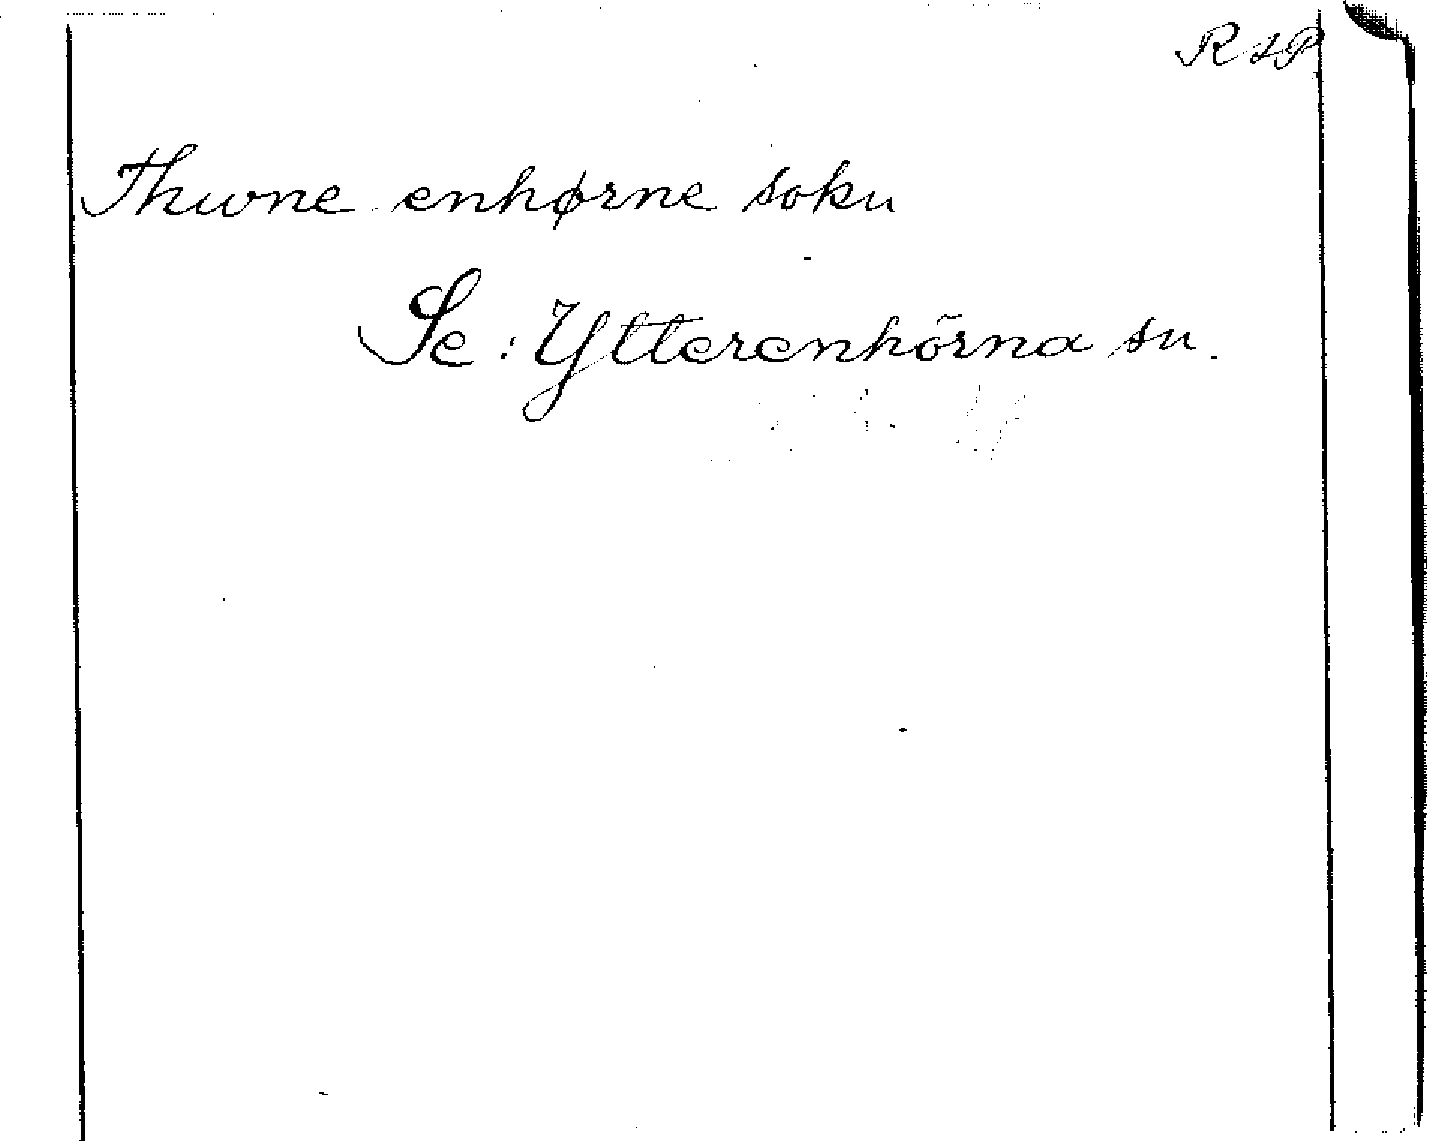 RAP
Thwne enhørne soku
Se: Ytterenhörna sn.